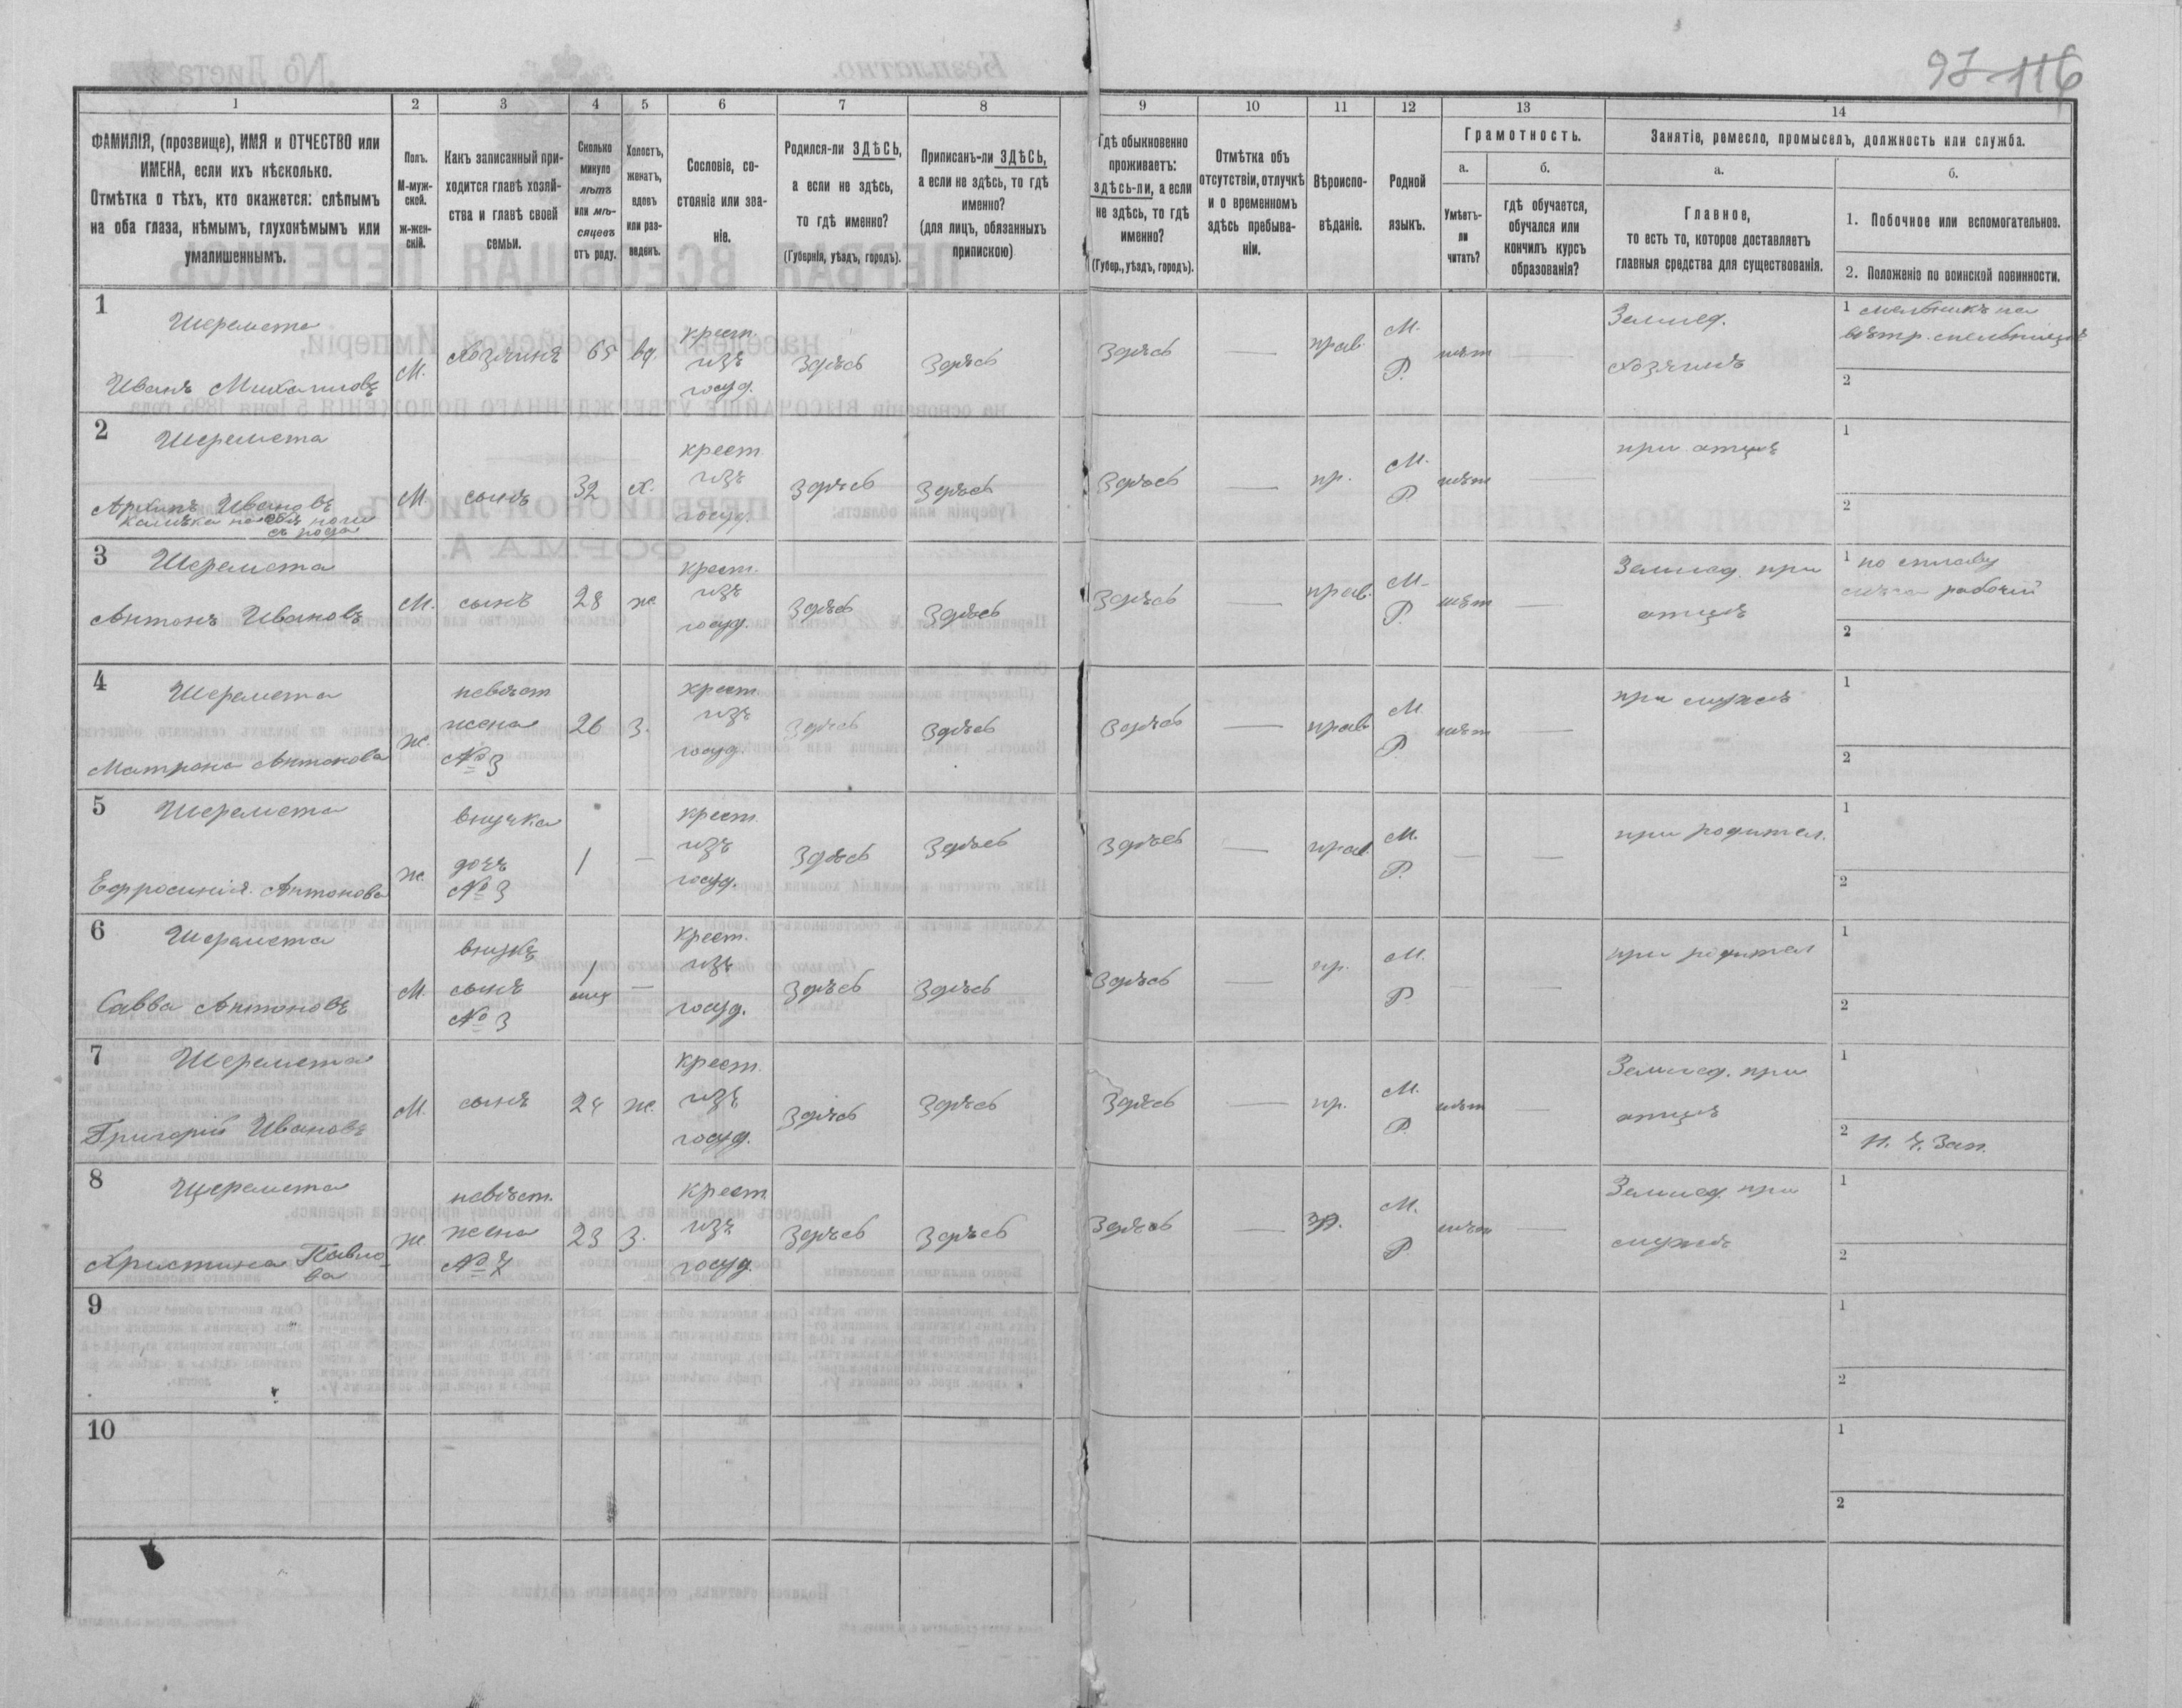 97 116
1 2 3 4 5 6 7 8 9 10 11 12 13 14
ФАМИЛІЯ, (прозвище), ИМЯ и ОТЧЕСТВО или
ИМЕНА, если ихъ нѣсколько.
Отмѣтка о тѣхъ, кто окажется: слѣпымъ
на оба глаза, нѣмымъ, глухонѣмымъ или
умалишеннымъ.
Полъ.
М-муж-
ской.
ж-жен-
скій.
Какъ записанный при-
ходится главѣ хозяй-
ства и главѣ своей
семьи.
Сколько
минуло
лѣтъ
или мѣ-
сяцевъ
отъ роду.
Холостъ,
женатъ,
вдовъ
или раз-
веденъ.
Сословіе, со-
стояніе или зва-
ніе.
Родился-ли ЗДѢСЬ,
а если не здѣсь,
то гдѣ именно?
(Губернія, уѣздъ, городъ).
Приписанъ-ли ЗДѢСЬ,
а если не здѣсь, то гдѣ
именно?
(для лицъ, обязанныхъ
припискою)
Гдѣ обыкновенно
проживаетъ:
здѣсь-ли, а если
не здѣсь, то гдѣ
именно?
(Губер., уѣздъ, городъ).
Отмѣтка объ
отсутствіи, отлучкѣ
и о временномъ
здѣсь пребыва-
ніи.
Вѣроиспо-
вѣданіе.
Родной
языкъ.
Грамотность.
а.
Умѣетъ-
ли
читать?
б.
гдѣ обучается,
обучался или
кончилъ курсъ
образованія?
Занятіе, ремесло, промыселъ, должность или служба.
а.
Главное,
то есть то, которое доставляетъ
главныя средства для существованія.
б.
1. Побочное или вспомогательное.
2. Положеніе по воинской повинности.
1
Шеремета
Иванъ Михаиловъ
М.
хозяинъ
65
вд.
крест.
изъ
госуд.
здѣсь
здѣсь
здѣсь
—
прав.
М.
Р.
нѣт
—
Землед.
хозяинъ
1 мельникъ на
вѣтр. мельницѣ
2
2
Шеремета
Архипъ Ивановъ
съ рода
М.
сынъ
32
х.
крест
изъ
госуд.
здѣсь
здѣсь
здѣсь
—
пр.
М.
Р.
нѣт
при отцѣ
1
2
3
Шеремета
Антонъ Ивановъ
М.
сынъ
28
ж
крест.
изъ
госуд.
здѣсь
здѣсь
здѣсь
—
прав.
М.
Р.
нѣт
—
Землед. при
отцѣ
1 по сплаву
лѣса рабочій
2
4
Шеремета
Матрона Антонова
ж.
невѣст
жена
№ 3
26
з.
крест.
изъ
госуд.
здѣсь
здѣсь
здѣсь
—
прав.
М.
Р.
нѣт
—
при мужѣ
1
2
5
Шеремета
Ефросинія Антонова
ж
внучка
дочь
№ 3
1
—
крест.
изъ
госуд.
здѣсь
здѣсь
здѣсь
—
прав.
М.
Р.
—
—
при родител.
1
2
6
Шеремета
Савва Антоновъ
М.
внукъ
сынъ
№ 3
1
мц
—
крест.
изъ
госуд.
здѣсь
здѣсь
здѣсь
—
пр.
М.
Р.
—
—
при родител
1
2
7
Шеремета
Григорій Ивановъ
М.
сынъ
24
ж.
крест.
изъ
госуд.
здѣсь
здѣсь
здѣсь
—
пр.
М.
Р.
нѣт
—
Землед. при
отцѣ
1
2 н. ч. зап.
8
Шеремета
Христина Павло-
ва
ж
невѣст.
жена
№ 7
23
з.
крест
изъ
госуд.
здѣсь
здѣсь
здѣсь
—
пр.
М.
Р.
нѣт
—
Землед. при
мужѣ
1
2
9
1
2
10
1
2